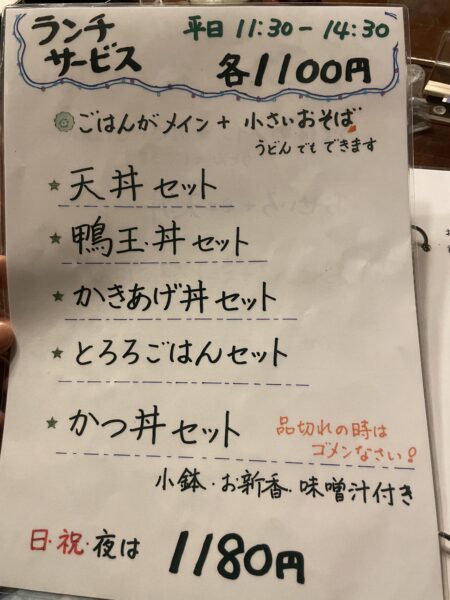 ランチ
サービス
平日 11:30-14:30
各1100円
ごはんがメイン + 小さいおそば
うどんでもできます
★天丼セット
★鴨玉丼セット
★かきあげ丼セット
★とろろごはんセット
★かつ丼セット
品切れの時は
ゴメンなさい!
小鉢・お新香・味噌汁付き
日・祝・夜は 1180円